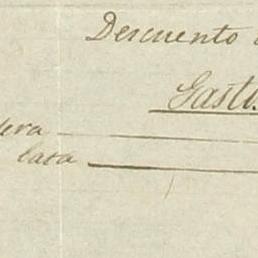 Descuento
Gast
era
lata